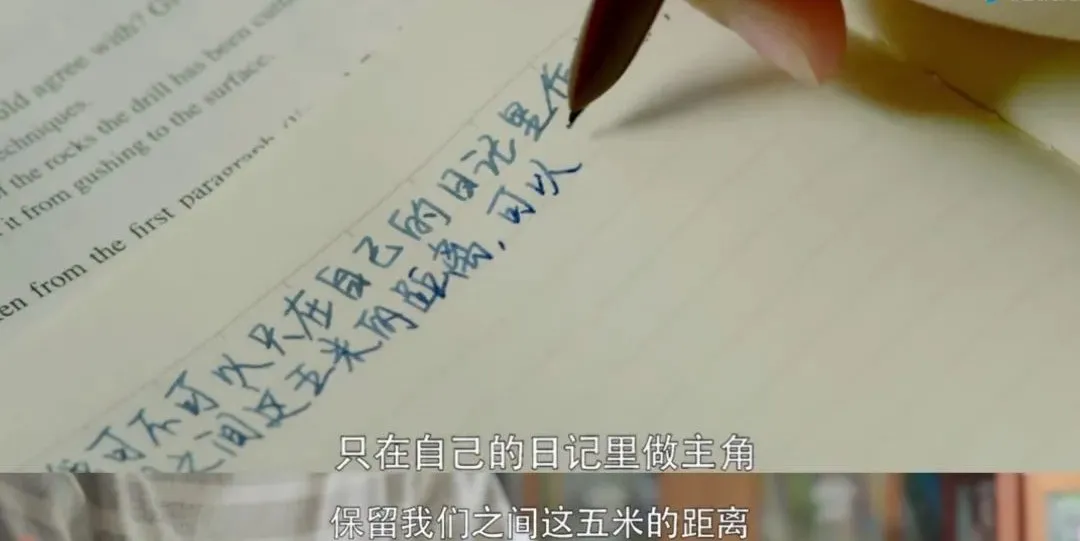 old agree with? G
echniques.
of the rocks the drill has been
it from gushing to the surface.
en from the first paragraph
可不可以只在自己的日记里
之间这五米的距离,可以
只在自己的日记里做主角
保留我们之间这五米的距离